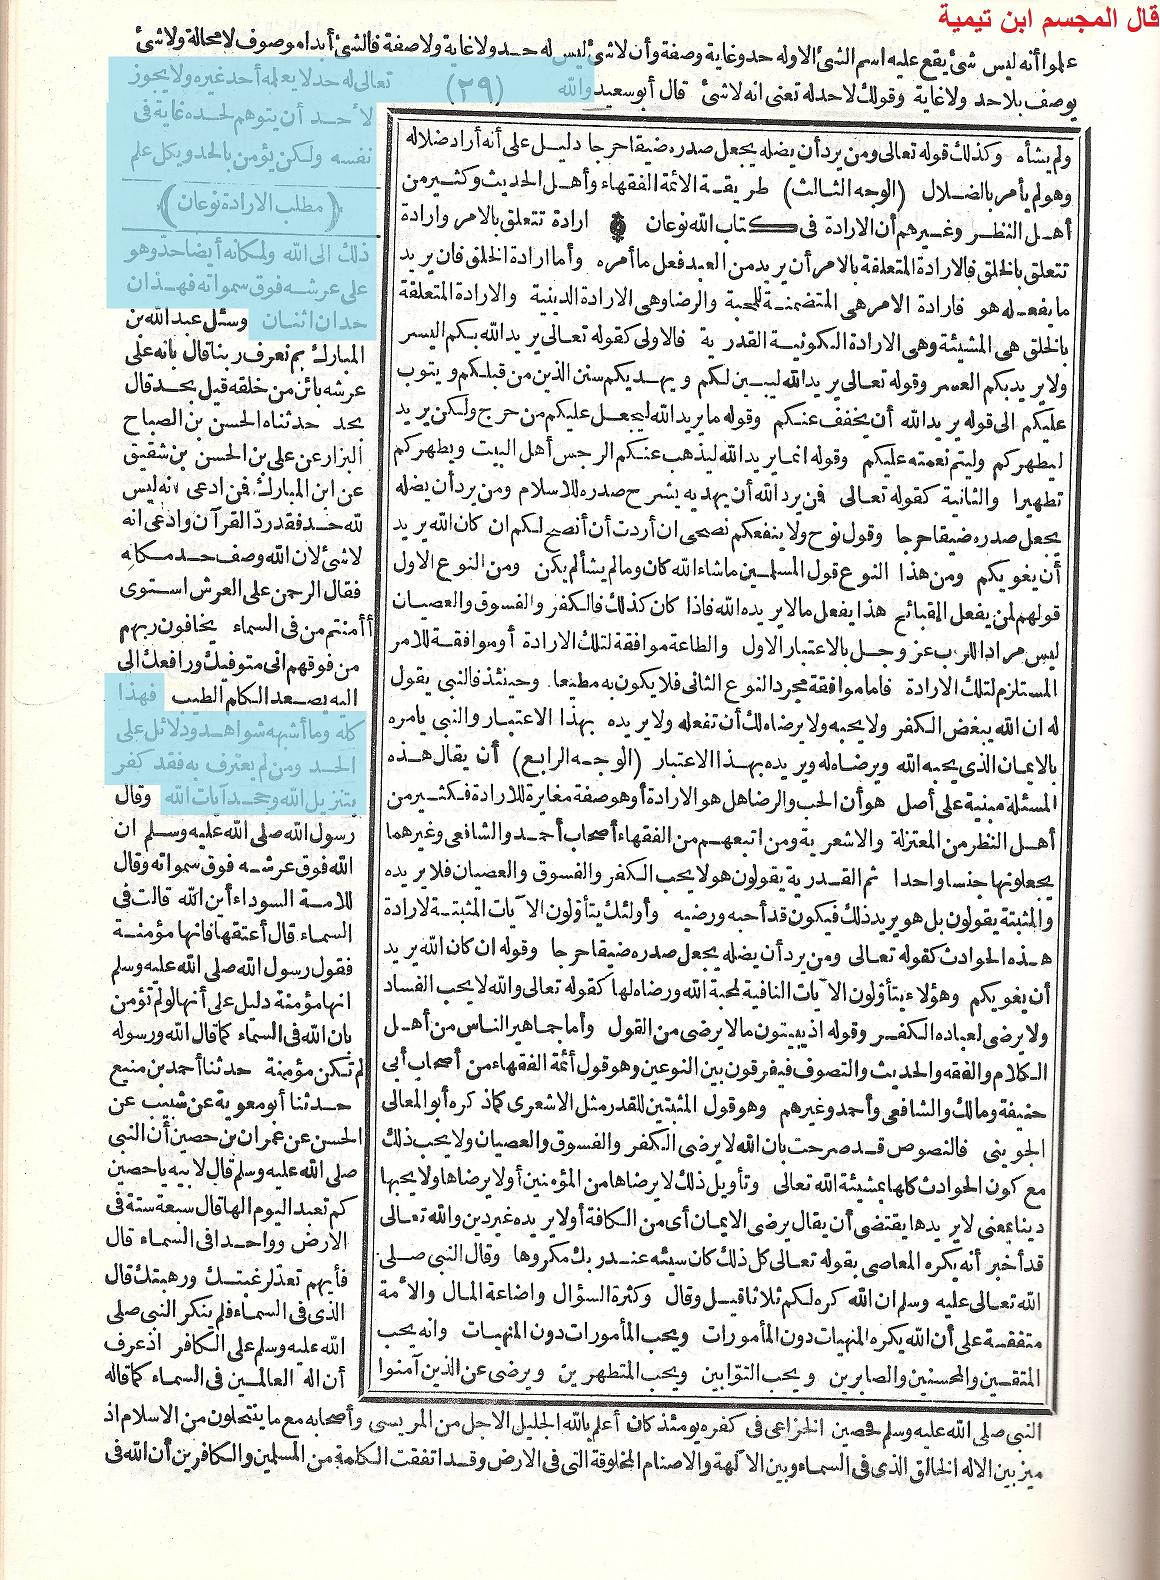 قال المجسم ابن تيمية
علموا أنه ليس شئ يقع عليه اسم الشئ الا وله حد وغاية وصفة وأن لاشئ ليس له حد ولا غاية ولا صفة فالشئ أبدا موصوف لا محالة ولا شئ
يوصف بلا حد ولا غاية وقولك لا حد له تعنى انه لا شئ قال أبو سعيد والله (٢٩) تعالى له حد لا يعلمه أحد غيره ولا يجوز
ولم يشأه وكذلك قوله تعالى ومن يرد أن يضله يجعل صدره ضيقا حرجا دليل على أنه أراد ضلاله
وهو لم يأمر بالضلال (الوجه الثالث) طريقة الائمة الفقهاء وأهل الحديث وكثير من
أهل النظر وغيرهم أن الارادة فى كتاب الله نوعان ارادة تتعلق بالامر وارادة
تتعلق بالخلق فالارادة المتعلقة بالامر أن يريد من العبد فعل ما أمره وأما ارادة الخلق فان يريد
ما يفعله هو فارادة الامر هى المتضمنة للمحبة والرضا وهى الارادة الدينية والارادة المتعلقة
بالخلق هى المشيئة وهى الارادة الكونية القدرية فالاولى كقوله تعالى يريد الله بكم اليسر
ولا يريد بكم العسر وقوله تعالى يريد الله ليبين لكم ويهديكم سنن الذين من قبلكم ويتوب
عليكم الى قوله يريد الله أن يخفف عنكم وقوله ما يريد الله ليجعل عليكم من حرج ولكن يريد
ليطهركم وليتم نعمته عليكم وقوله انما يريد الله ليذهب عنكم الرجس أهل البيت ويطهركم
تطهيرا والثانية كقوله تعالى فمن يرد الله أن يهديه يشرح صدره للاسلام ومن يرد أن يضله
يجعل صدره ضيقا حرجا وقول نوح ولا ينفعكم نصحى ان أردت أن أنصح لكم ان كان الله يريد
أن يغويكم ومن هذا النوع قول المسلمين ما شاء الله كان وما لم يشأ لم يكن ومن النوع الاول
قولهم لمن يفعل القبائح هذا يفعل مالا يريده الله فاذا كان كذلك فالكفر والفسوق والعصيان
ليس مرادا للرب عز وجل بالاعتبار الاول والطاعة موافقة لتلك الارادة أو موافقة للامر
المستلزم لتلك الارادة فاما موافقة مجرد النوع الثانى فلا يكون به مطيعا وحينئذ فالنبى يقول
له ان الله يبغض الكفر ولا يحبه ولا يرضاه لك أن تفعله ولا يريده بهذا الاعتبار والنبى يامره
بالايمان الذى يحبه الله ويرضاه له ويريده بهذا الاعتبار (الوجه الرابع) أن يقال هذه
المسئلة مبنية على أصل هو أن الحب والرضا هل هو الارادة أو هو صفة مغايرة للارادة فكثير من
أهل النظر من المعتزلة والاشعرية ومن اتبعهم من الفقهاء أصحاب أحمد والشافعى وغيرهما
يجعلونها جنسا واحدا ثم القدرية يقولون هو لا يحب الكفر والفسوق والعصيان فلا يريده
والمثبتة يقولون بل هو يريد ذلك فيكون قد أحبه ورضيه وأولئك يتأولون الآيات المثبتة لارادة
هذه الحوادث كقوله تعالى ومن يرد أن يضله يجعل صدره ضيقا حرجا وقوله ان كان الله يريد
أن يغويكم وهؤلاء يتأولون الآيات النافية لمحبة الله ورضاه لها كقوله تعالى والله لا يحب الفساد
ولا يرضى لعباده الكفر وقوله اذ يبيتون مالا يرضى من القول وأما جماهير الناس من أهل
الكلام والفقه والحديث والتصوف فيفرقون بين النوعين وهو قول أئمة الفقهاء من أصحاب أبى
حنيفة ومالك والشافعى وأحمد وغيرهم وهو قول المثبتين للقدر مثل الاشعرى كما ذكره أبو المعالى
الجوينى فالنصوص قد صرحت بان الله لا يرضى الكفر والفسوق والعصيان ولا يحب ذلك
مع كون الحوادث كلها بمشيئة الله تعالى وتأويل ذلك لا يرضاها من المؤمنين أو لا يرضاها ولا يحبها
دينا بمعنى لا يريدها يقتضى أن يقال يرضى الايمان أى من الكافة أو لا يريده غير دين والله تعالى
قد أخبر أنه يكره المعاصى بقوله تعالى كل ذلك كان سيئه عند ربك مكروها وقال النبى صلى
الله تعالى عليه وسلم ان الله كره لكم ثلاثا قيل وقال وكثرة السؤال واضاعة المال والأمة
متفقة على أن الله يكره المنهيات دون المأمورات ويحب المأمورات دون المنهيات وانه يحب
المتقين والمحسنين والصابرين ويحب التوابين ويحب المتطهرين ويرضى عن الذين آمنوا
لأحد أن يتوهم لحده غاية فى
نفسه ولكن يؤمن بالحد ويكل علم
(مطلب الارادة نوعان)
ذلك الى الله ولمكانه أيضا حد وهو
على عرشه فوق سمواته فهذان
حدان اثنان وسئل عبد الله بن
المبارك بم نعرف ربنا قال بانه على
عرشه بائن من خلقه قيل بحد قال
بحد حدثناه الحسن بن الصباح
البزار عن على بن الحسن بن شقيق
عن ابن المبارك فمن ادعى انه ليس
لله حد فقد رد القرآن وادعى انه
لا شئ لان الله وصف حد مكانه
فقال الرحمن على العرش استوى
أأمنتم من فى السماء يخافون ربهم
من فوقهم انى متوفيك ورافعك الى
اليه يصعد الكلم الطيب فهذا
كله وما أشبهه شواهد ودلائل على
الحد ومن لم يعترف به فقد كفر
بتنزيل الله وجحد آيات الله وقال
رسول الله صلى الله عليه وسلم ان
الله فوق عرشه فوق سمواته وقال
للامة السوداء أين الله قالت فى
السماء قال أعتقها فانها مؤمنة
فقول رسول الله صلى الله عليه وسلم
انها مؤمنة دليل على أنها لو لم تؤمن
بان الله فى السماء كما قال الله ورسوله
لم تكن مؤمنة حدثنا أحمد بن منيع
حدثنا أبو معوية عن شبيب عن
الحسن عن عمران بن حصين أن النبى
صلى الله عليه وسلم قال لابيه يا حصين
كم تعبد اليوم الها قال سبعة ستة فى
الارض وواحدا فى السماء قال
فأيهم تعد لرغبتك ورهبتك قال
الذى فى السماء فلم ينكر النبى صلى
الله عليه وسلم على الكافر اذ عرف
أن اله العالمين فى السماء كما قاله
النبى صلى الله عليه وسلم فحصين الخزاعى فى كفره يومئذ كان أعلم بالله الجليل الاجل من المريسى وأصحابه مع ما ينتحلون من الاسلام اذ
ميز بين الاله الخالق الذى فى السماء وبين الآلهة والاصنام المخلوقة التى فى الارض وقد اتفقت الكلمة من المسلمين والكافرين أن الله فى